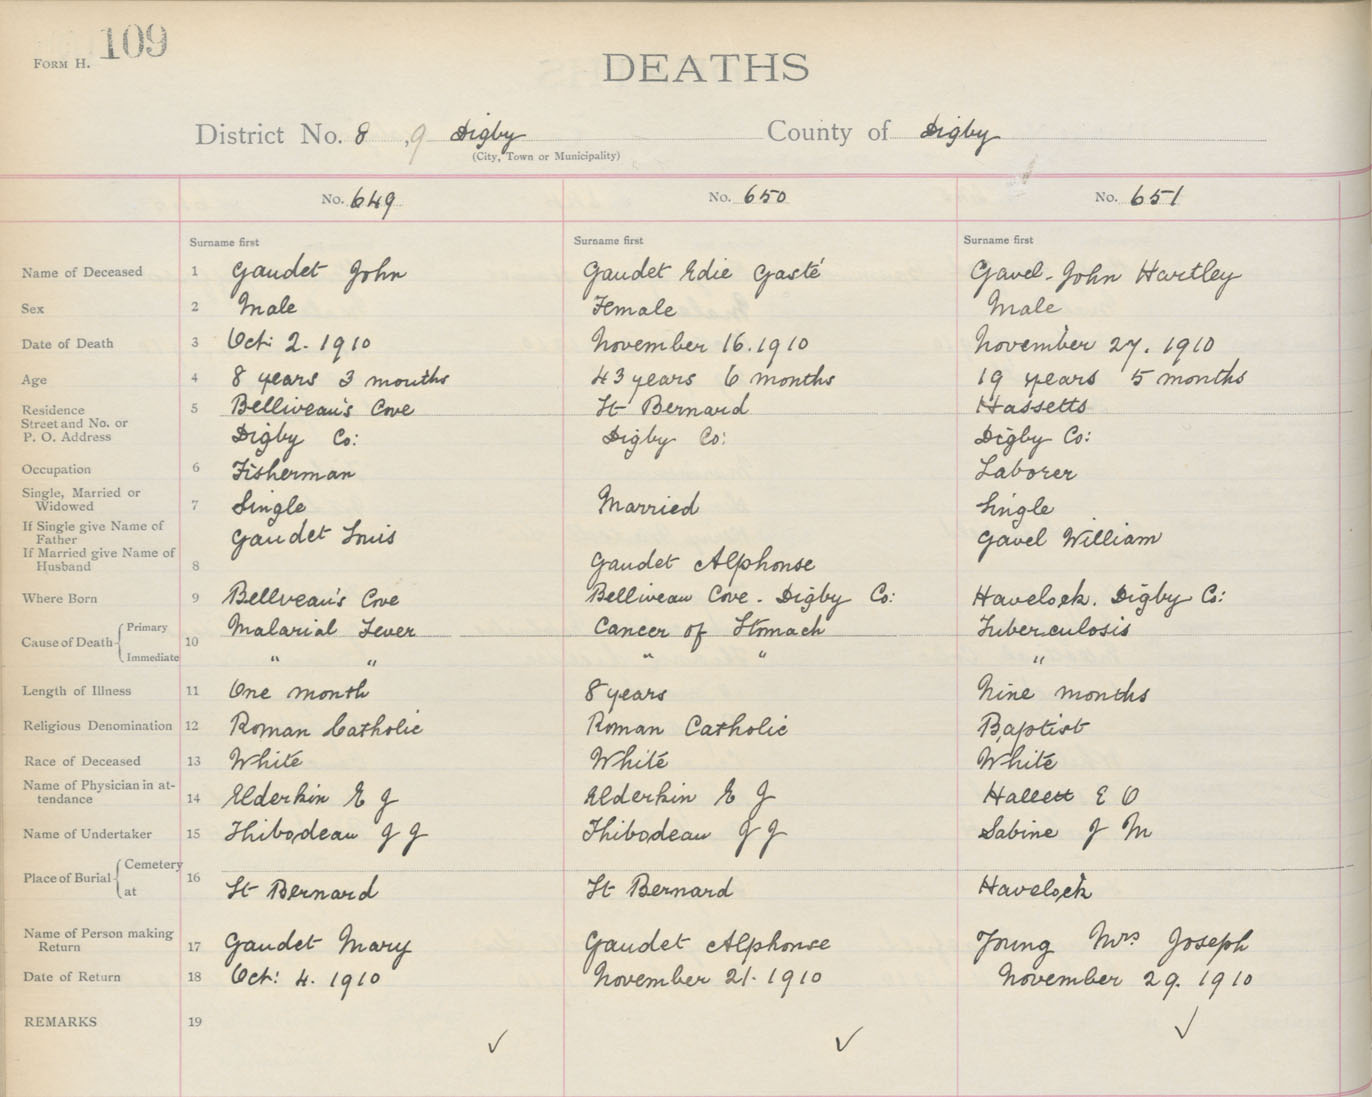 109
FORM H.
DEATHS
District No. 8 , 9 Digby County of Digby
(City, Town or Municipality)
No. 649 No. 650 No. 651
Surname first Surname first Surname first
Name of Deceased 1 Gaudet John Gaudet Edie Gasté Gavel. John Hartley
Sex 2 Male Female Male
Date of Death 3 Oct: 2. 1910 November 16. 1910 November 27. 1910
Age 4 8 years 3 months 43 years 6 months 19 years 5 months
Residence 5 Belliveau's Cove St Bernard Hassetts
Street and No. or
P. O. Address Digby Co: Digby Co: Digby Co:
Occupation 6 Fisherman Laborer
Single, Married or
Widowed 7 Single Married Single
If Single give Name of
Father Gaudet Louis Gavel William
If Married give Name of
Husband 8 Gaudet Alphonse
Where Born 9 Bellveau's Cove Belliveau Cove. Digby Co: Havelock. Digby Co:
Cause of Death Primary 10 Malarial Fever Cancer of Stomach Tuberculosis
Immediate " " " " "
Length of Illness 11 One month 8 years Nine months
Religious Denomination 12 Roman Catholic Roman Catholic Baptist
Race of Deceased 13 White White White
Name of Physician in at-
tendance 14 Elderkin E J Elderkin E J Hallett E O
Name of Undertaker 15 Thibodeau J J Thibodeau J J Sabine J M
Place of Burial Cemetery 16
at St Bernard St Bernard Havelock
Name of Person making
Return 17 Gaudet Mary Gaudet Alphonse Young Mrs Joseph
Date of Return 18 Oct: 4. 1910 November 21. 1910 November 29. 1910
REMARKS 19
✓ ✓ ✓